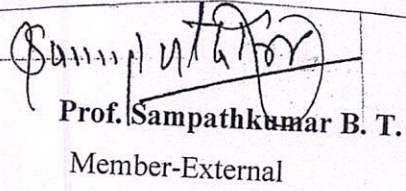 Prof. Sampathkumar B. T.
Member-External